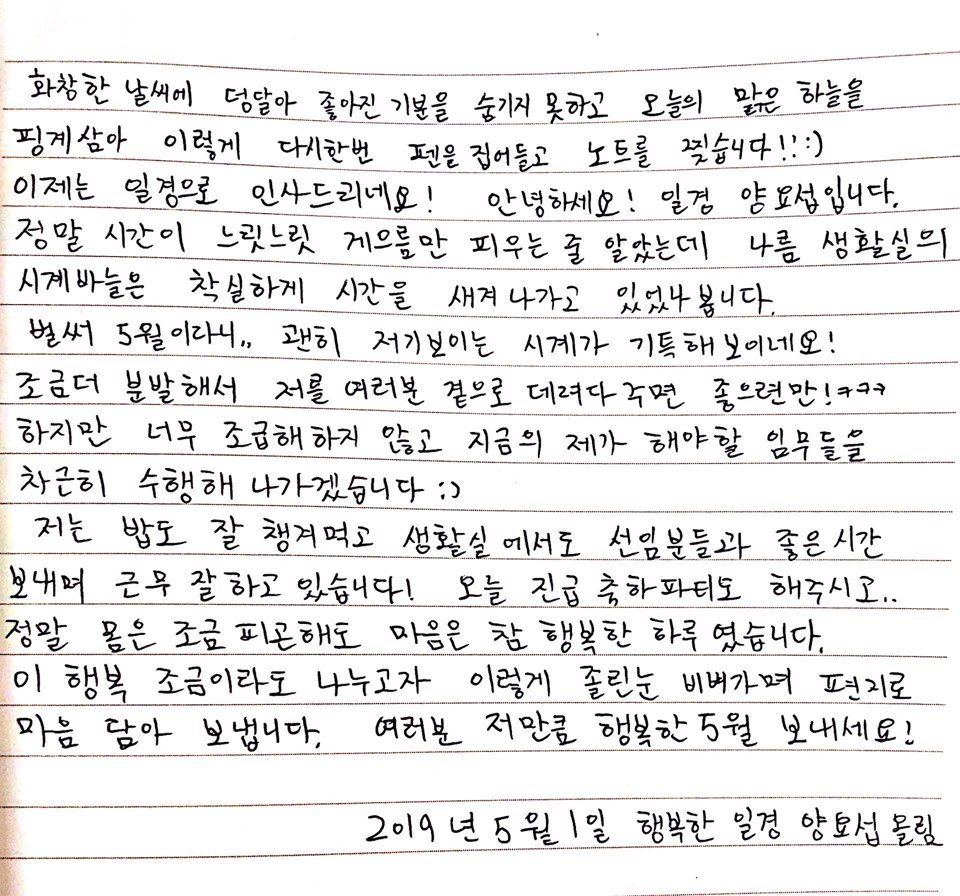 화창한 날씨에 덩달아 좋아진 기분을 숨기지 못하고 오늘의 맑은 하늘을
핑계삼아 이렇게 다시한번 펜을 집어들고 노트를 찢습니다!! :)
이제는 일경으로 인사드리네요! 안녕하세요! 일경 양요섭입니다.
정말 시간이 느릿느릿 게으름만 피우는 줄 알았는데 나름 생활실의
시계바늘은 착실하게 시간을 새겨나가고 있었나봅니다.
벌써 5월이라니.. 괜히 저기보이는 시계가 기특해보이네요!
조금더 분발해서 저를 여러분 곁으로 데려다 주면 좋으련만!ㅋㅋㅋ
하지만 너무 조급해하지 않고 지금의 제가 해야할 임무들을
차근히 수행해 나가겠습니다 :)
저는 밥도 잘 챙겨먹고 생활실에서도 선임분들과 좋은시간
보내며 근무 잘하고 있습니다! 오늘 진급 축하파티도 해주시고..
정말 몸은 조금 피곤해도 마음은 참 행복한 하루였습니다.
이 행복 조금이라도 나누고자 이렇게 졸린눈 비벼가며 편지로
마음 담아 보냅니다. 여러분 저만큼 행복한 5월 보내세요!
2019년 5월 1일 행복한 일경 양요섭 올림